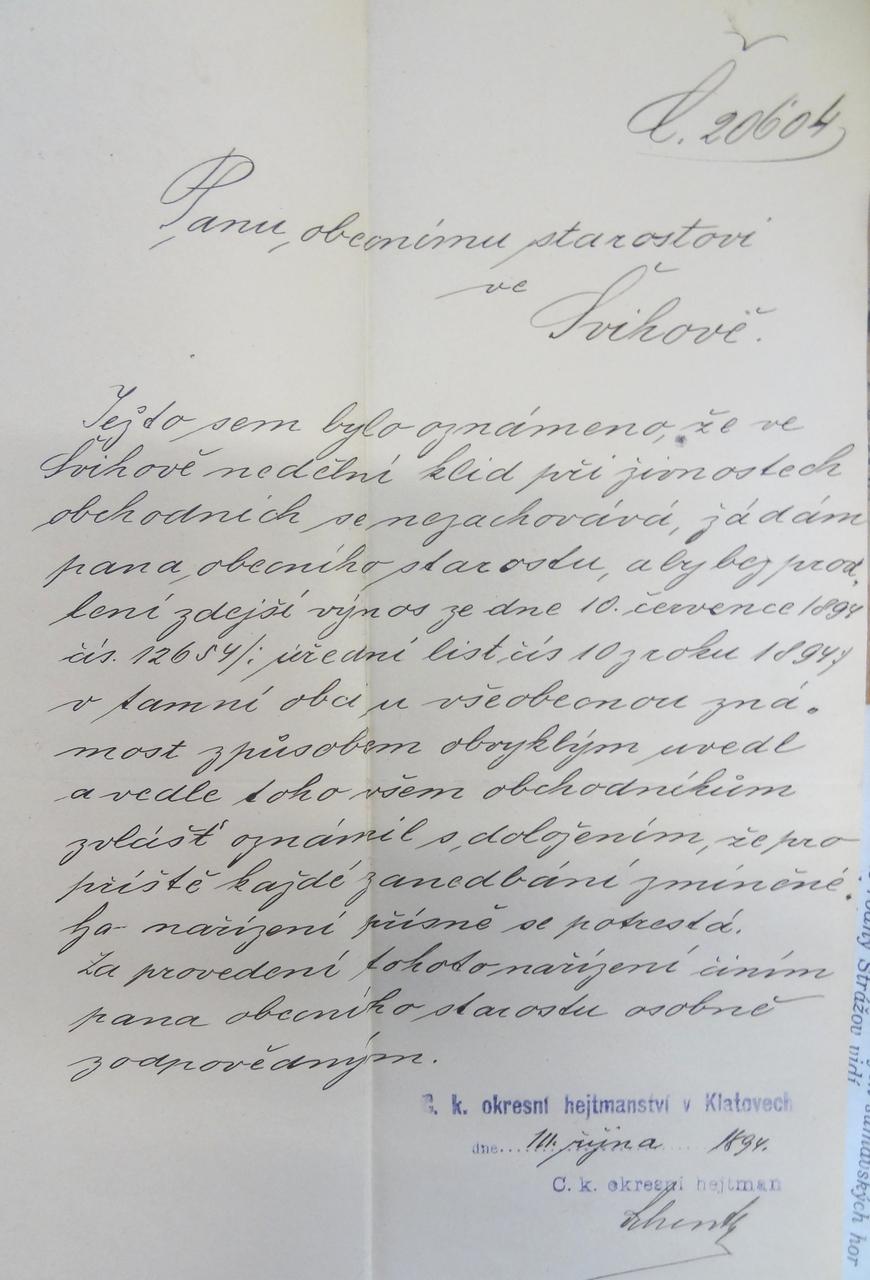 Č. 20604
Panu obecnímu starostovi
ve
Švihově.
Ježto sem bylo oznámeno, že ve
Švihově nedělní klid při živnostech
obchodních se nezachovává, žádám
pana obecního starostu, aby bez prod,
lení zdejší výnos ze dne 10. července 1894
čís. 12654/: úřední list čís 10 z roku 1894/
v tamní obci u všeobecnou zná,
most způsobem obvyklým uvedl
a vedle toho všem obchodníkům
zvlášť oznámil s doložením, že pro
příště každé zanedbání zmíněné,
ho nařízení přísně se potrestá.
Za provedení tohoto nařízení činím
pana obecního starostu osobně
zodpovědným.
C. k. okresní hejtmanství v Klatovech
dne října 1894.
C. k. okresní hejtman
Strážov vidí
šumavských hor